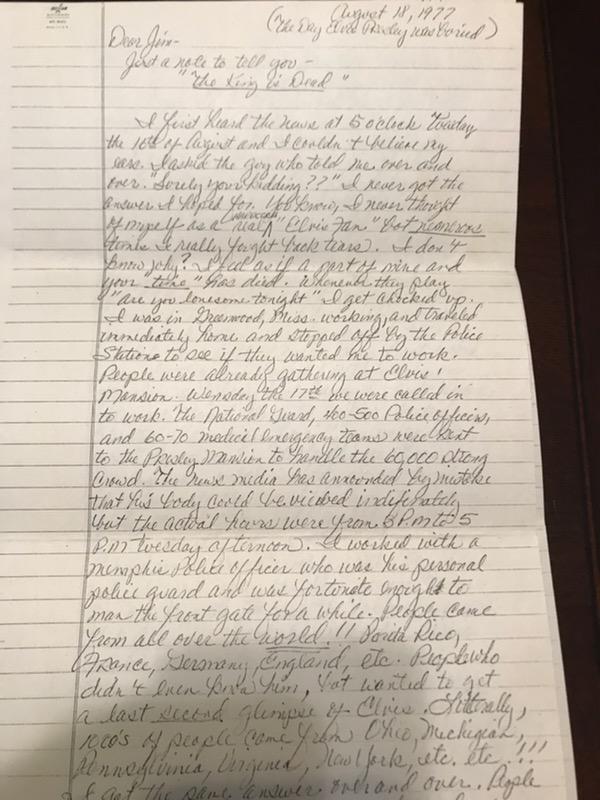 August 18, 1977
(The Day Elvis Presley was buried)
Dear Jim-
Just a note to tell you -
"The King is Dead"
I first heard the news at 5 o'clock Tuesday
the 16th of August and I couldn't believe my
ears. I asked the guy who told me over and
over. "Surely your kidding??" I never got the
answer I hoped for. You know, I never thought
of myself as a real "Elvis Fan" but numerous
times I really fought back tears. I don't
know why? I feel as if a part of mine and
your time "has died. Whenever they play
"are you lonesome tonight" I get choked up.
I was in Greenwood, Miss. working, and traveled
immediately home and stopped off by the Police
Station to see if they wanted me to work.
People were already gathering at Elvis'
Mansion. Wensday the 17th we were called in
to work. The National Guard, 400-500 Police officers,
and 60-70 medical emergency teams were sent
to the Presley Mansion to handle the 60,000 strong
crowd. The news media has announded by mistake
that his body could be viewed indefinately
but the actual hours were from 3 P.M to 5
P.M Tuesday afternoon. I worked with a
Memphis Police officer who was his personal
police guard and was fortunate enought to
man the front gate for a while. People came
from all over the world!! Porita Rico,
France, Germany, England, etc. People who
didn't even know him, but wanted to get
a last second glimpse of Elvis. Litterally,
1000's of people came from Ohio, Michigian,
Pennsylvinia, Virginea, New York, etc. etc!!!
I got the same answer over and over. People